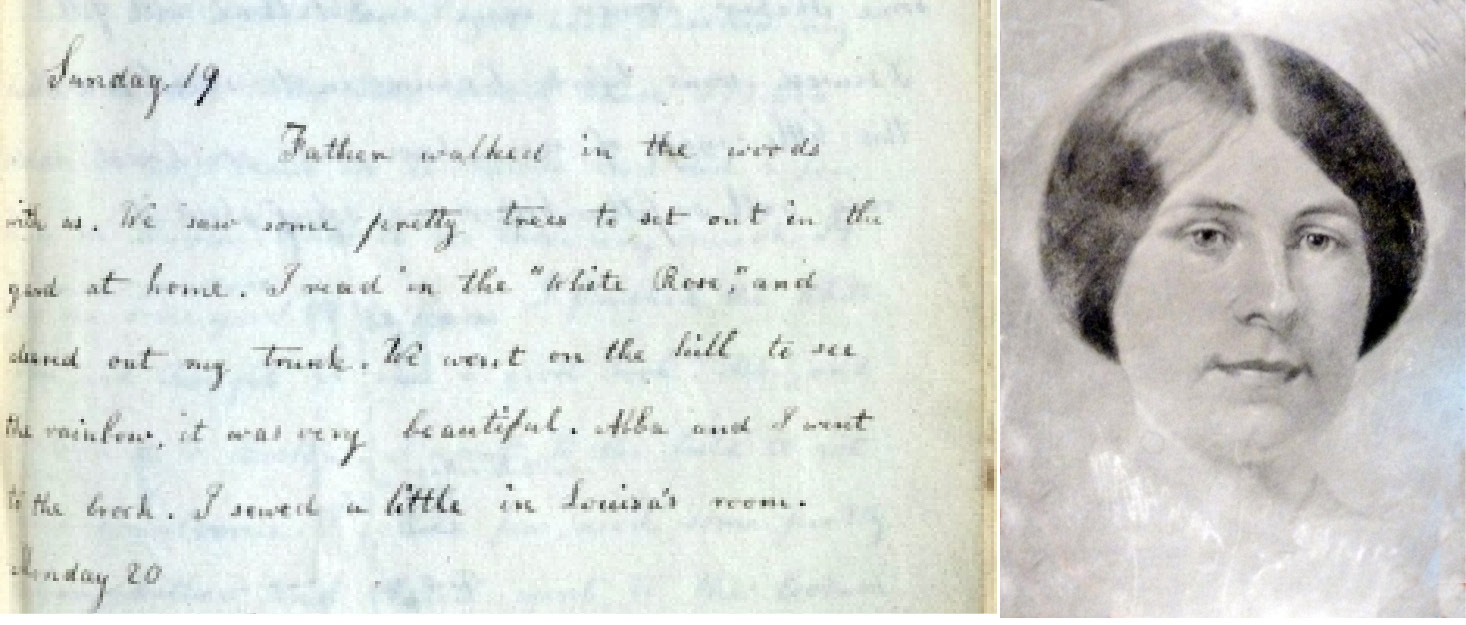 Sunday 19
Father walked in the woods
with us. We saw some pretty trees to set out in the
yard at home. I read in the "White Rose", and
cleaned out my trunk. We went on the hill to see
the rainbow, it was very beautiful. Abba and I went
to the brook. I sewed a little in Louisa's room.
Monday 20